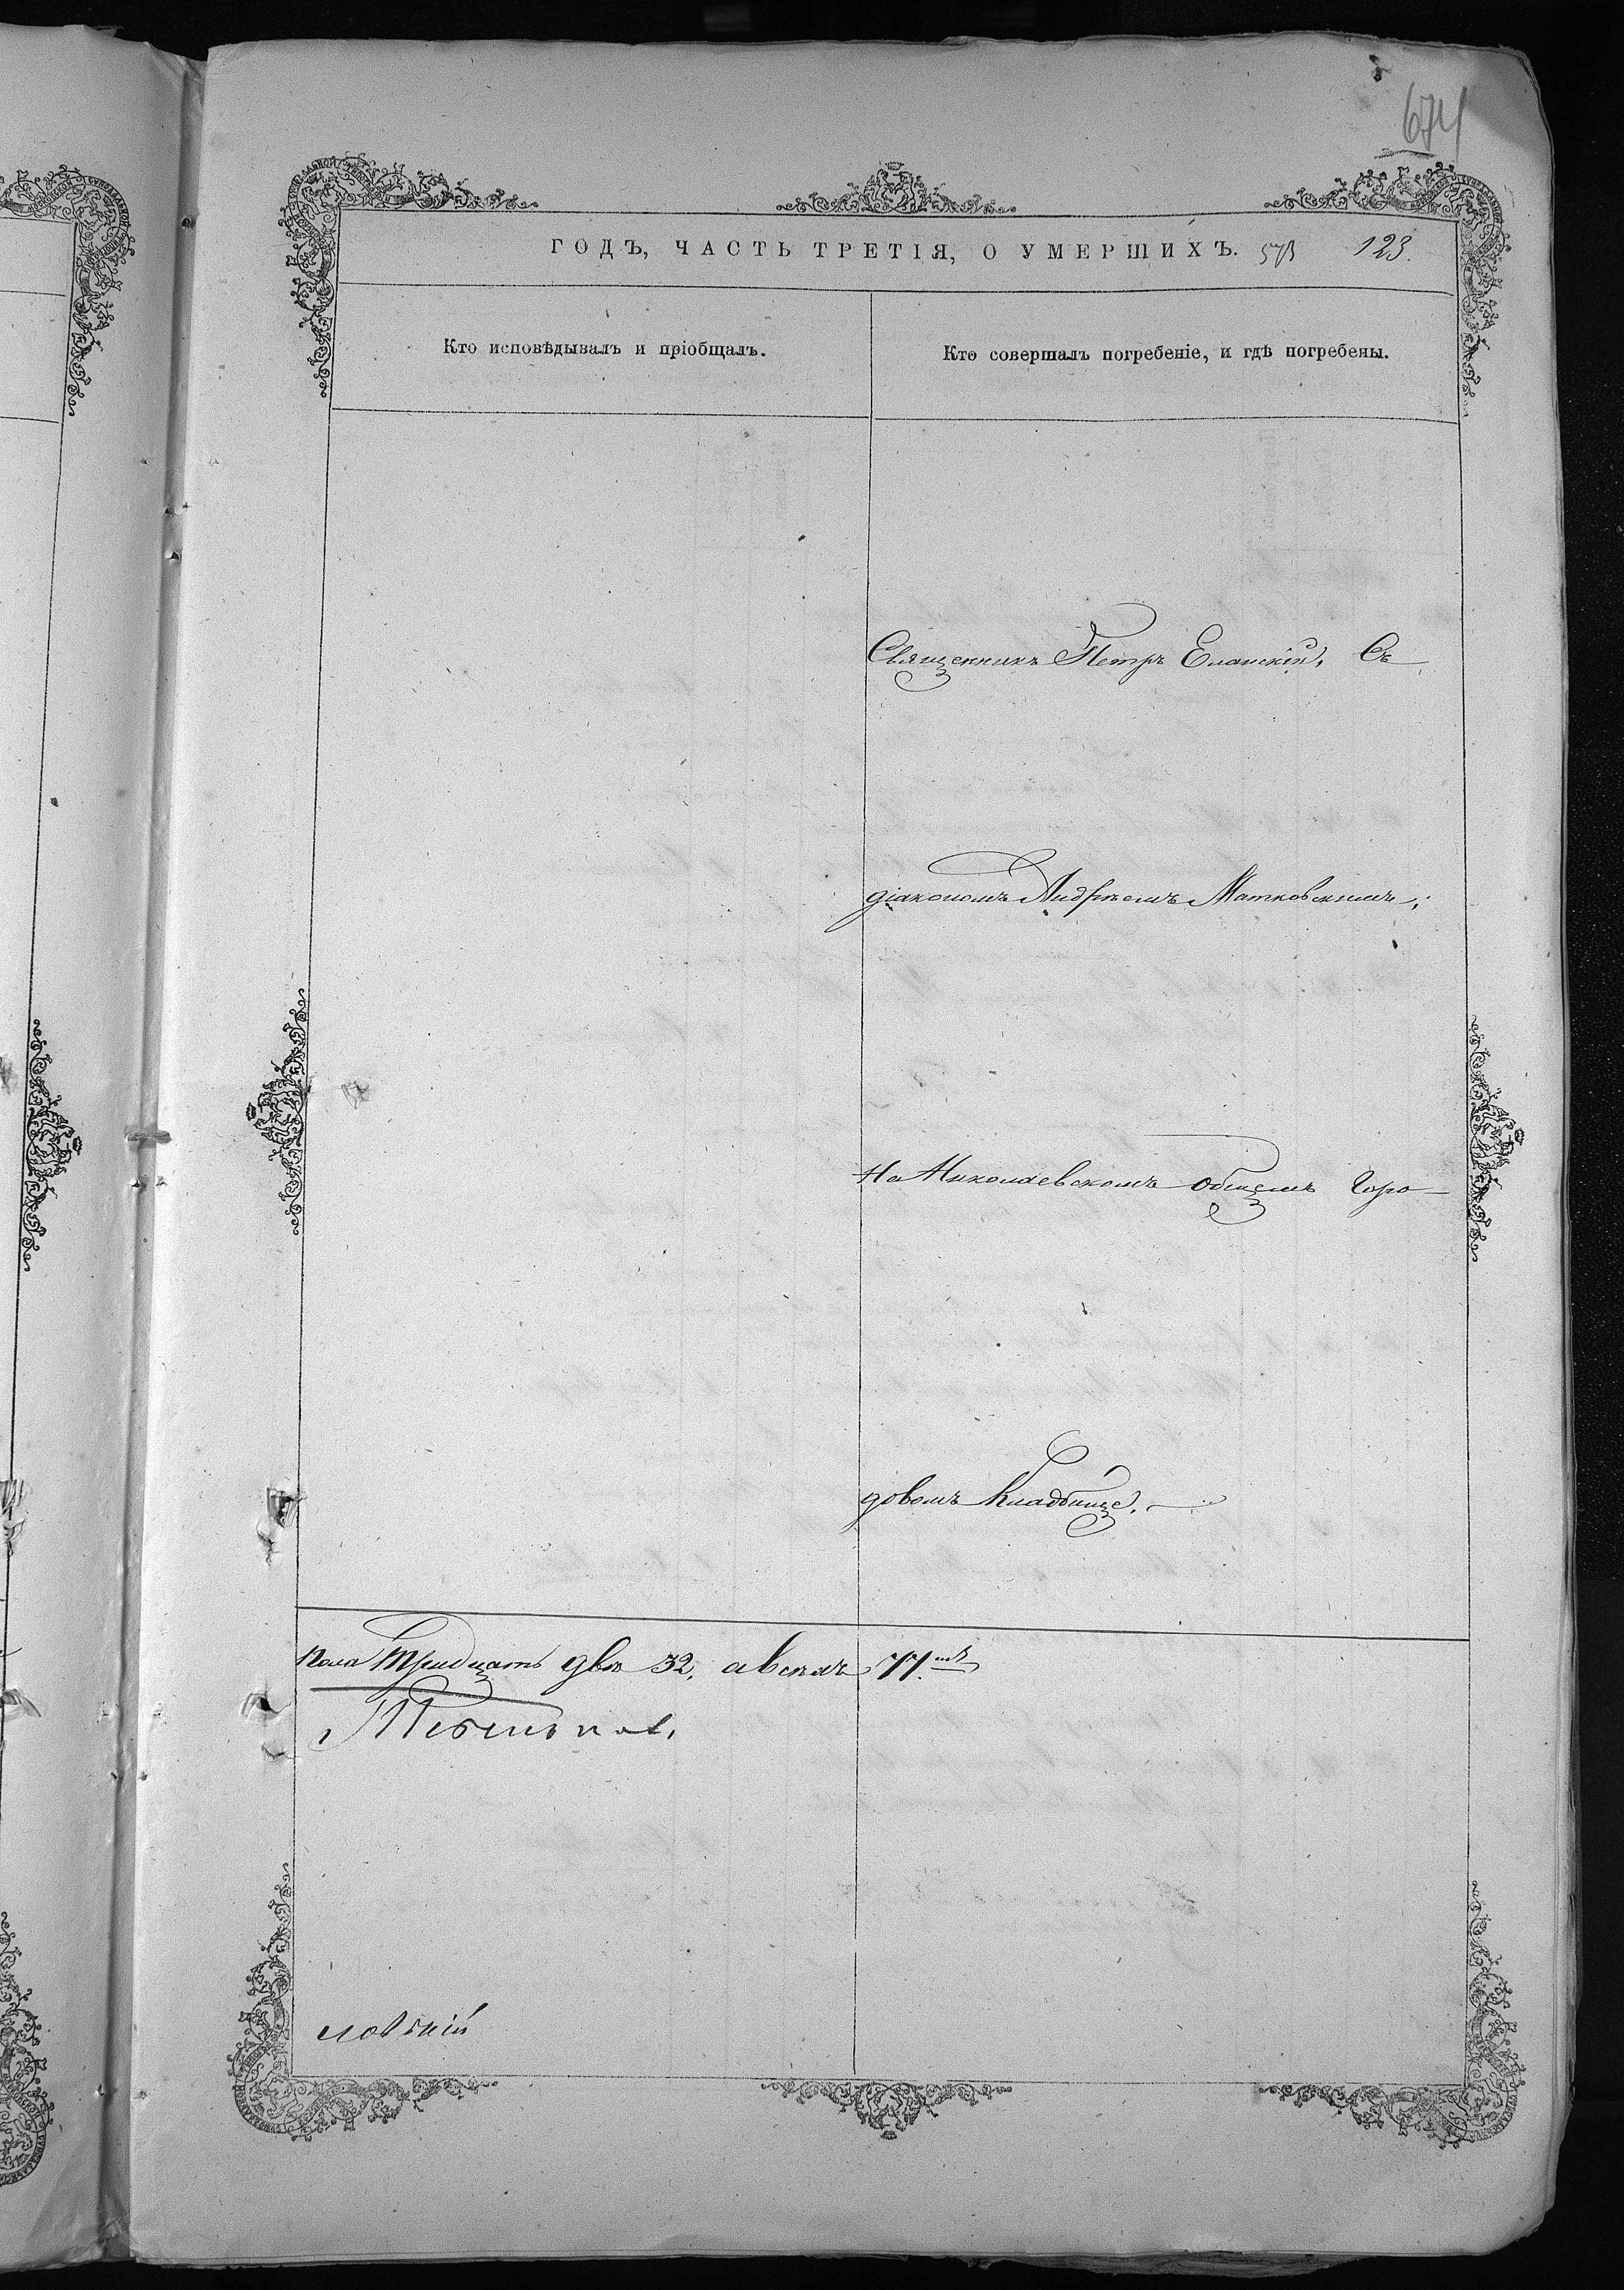 674
ГОДЪ, ЧАСТЬ ТРЕТІЯ, О УМЕРШИХЪ. 123.
Кто исповѣдывалъ и пріобщалъ.
Кто совершалъ погребеніе, и гдѣ погребены.
Священникъ Петръ Еланскій, Съ
діакономъ Андреемъ Матковскимъ,
На Николаевскомъ общемъ Горо-
довомъ кладбище.
пола тридцать двѣ 32, а всехъ 77.
ловскій